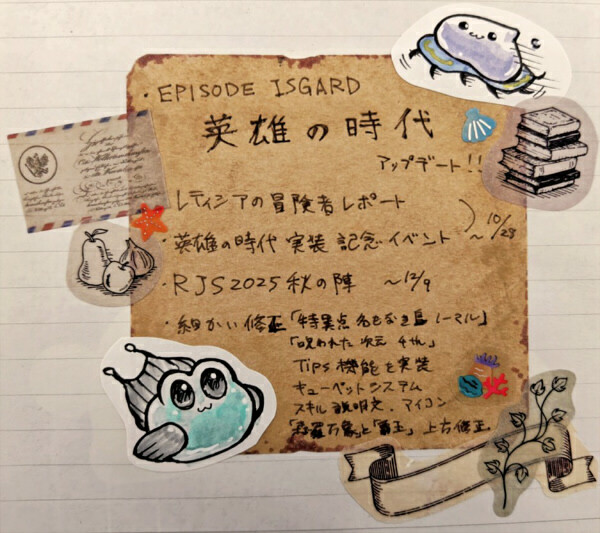 ・EPISODE ISGARD
英雄の時代
アップデート!!
・レティシアの冒険者レポート
・英雄の時代 実装 記念イベント ～10/28
・RJS2025 秋の陣 ～12/9
・細かい修正「特異点 名もなき島 ノーマル」
「呪われた次元 4th」
Tips 機能を実装
キューペットシステム
スキル説明文、アイコン
「森羅万象」と「覇王」上方修正。